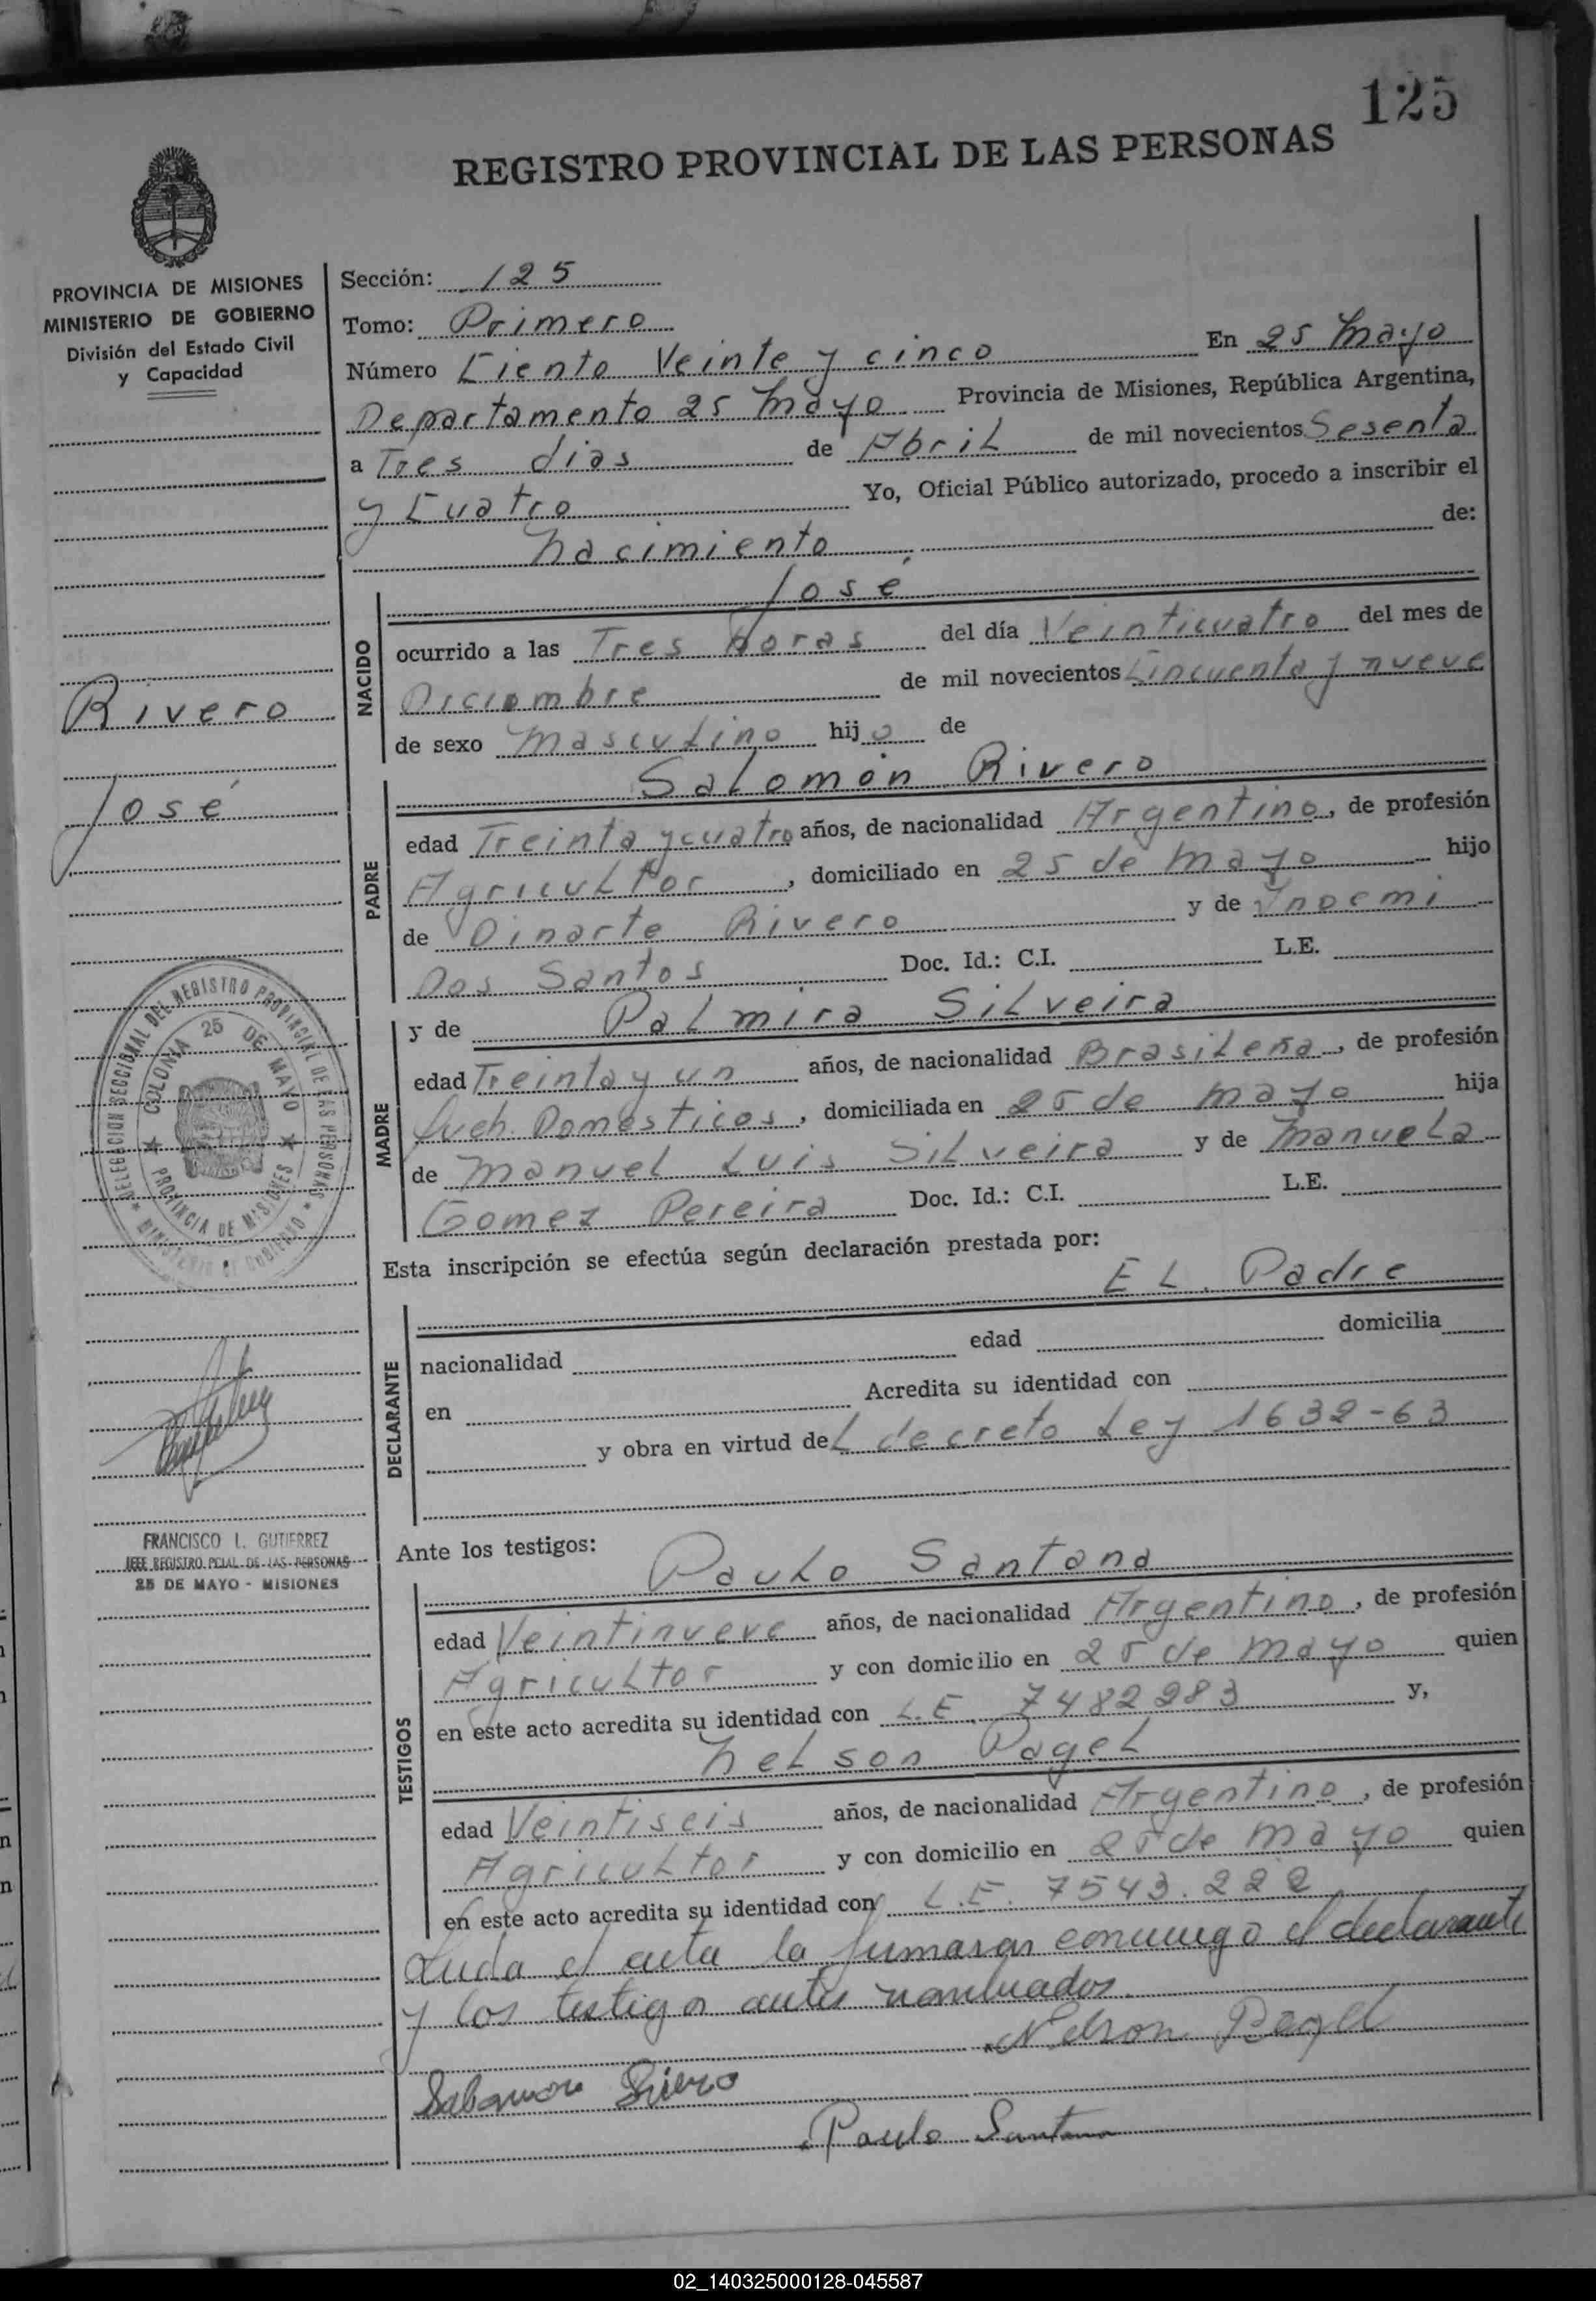 125
REGISTRO PROVINCIAL DE LAS PERSONAS
PROVINCIA DE MISIONES
MINISTERIO DE GOBIERNO
División del Estado Civil
y Capacidad
Sección: 125
Tomo: Primero
Número Ciento Veinte y cinco En 25 Mayo
Departamento 25 Mayo Provincia de Misiones, República Argentina,
a Tres dias de Abril de mil novecientos Sesenta
y Cuatro Yo, Oficial Público autorizado, procedo a inscribir el
nacimiento de:
José
NACIDO
ocurrido a las Tres horas del día Veinticuatro del mes de
Diciembre de mil novecientos Cincuenta y nueve
de sexo masculino hijo de
Rivero
José
PADRE
Salomón Rivero
edad Treinta y cuatro años, de nacionalidad Argentino, de profesión
Agricultor, domiciliado en 25 de Mayo hijo
de Dinarte Rivero y de Ynoemi
Dos Santos Doc. Id.: C.I. L.E.
MADRE
y de Palmira Silveira
edad Treinta y un años, de nacionalidad Brasileña, de profesión
Queh. Domésticos, domiciliada en 25 de Mayo hija
de Manuel Luis Silveira y de Manuela
Gomez Pereira Doc. Id.: C.I. L.E.
DELEGACION SECCIONAL DEL REGISTRO PROVINCIAL DE LAS PERSONAS
MINISTERIO DE GOBIERNO
COLONIA 25 DE MAYO
PROVINCIA DE MISIONES
Esta inscripción se efectúa según declaración prestada por:
El Padre
DECLARANTE
nacionalidad edad domicilia
en Acredita su identidad con
y obra en virtud del decreto Ley 1632-63
FRANCISCO I. GUTIERREZ
JEFE REGISTRO PCIAL. DE LAS PERSONAS
25 DE MAYO - MISIONES
Ante los testigos:
TESTIGOS
Paulo Santana
edad Veintinueve años, de nacionalidad Argentino, de profesión
Agricultor y con domicilio en 25 de Mayo quien
en este acto acredita su identidad con L.E. 7482283 y,
Nelson Pagel
edad Veintiseis años, de nacionalidad Argentino, de profesión
Agricultor y con domicilio en 25 de Mayo quien
en este acto acredita su identidad con L.E. 7543.222
Leida el acta la firmaron conmigo el declarante
y los testigos antes nombrados.
Nelson Pagel
Salomon Rivero
Paulo Santana
02_140325000128-045587